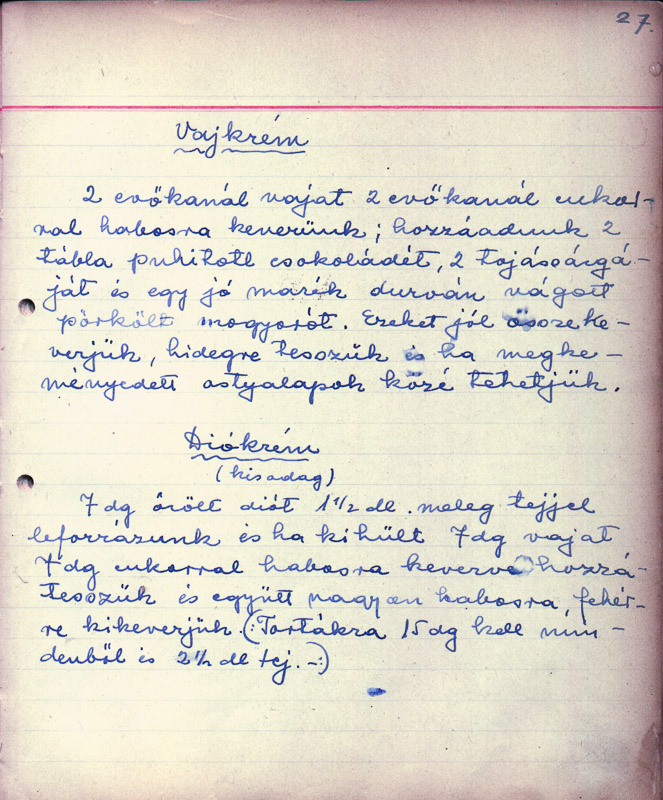 27.
Vajkrém
2 evőkanál vajat 2 evőkanál cukor-
ral habosra keverünk; hozzáadunk 2
tábla puhitott csokoládét, 2 tojássárgá-
ját és egy jó marék durván vágott
pörkölt mogyorót. Ezeket jól összeke-
verjük, hidegre tesszük és ha megke-
ményedett ostyalapok közé tehetjük.
Diókrém
(kisadag)
7 dg őrölt diót 1 1/2 dl. meleg tejjel
leforrázunk és ha kihült 7 dg vajat
7 dg cukorral habosra keverve hozzá-
tesszük és együtt nagyon habosra, fehér-
re kikeverjük. (: Tortákra 15 dg kell min-
denből és 2 1/2 dl tej. -:)